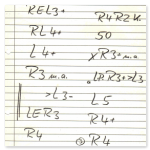 REL3+
RL4+
L4+
R3 u.a.
>L3-
LER3
R4
R4R2K
50
xR3+
LR3+>L3
L5
R4+
R4